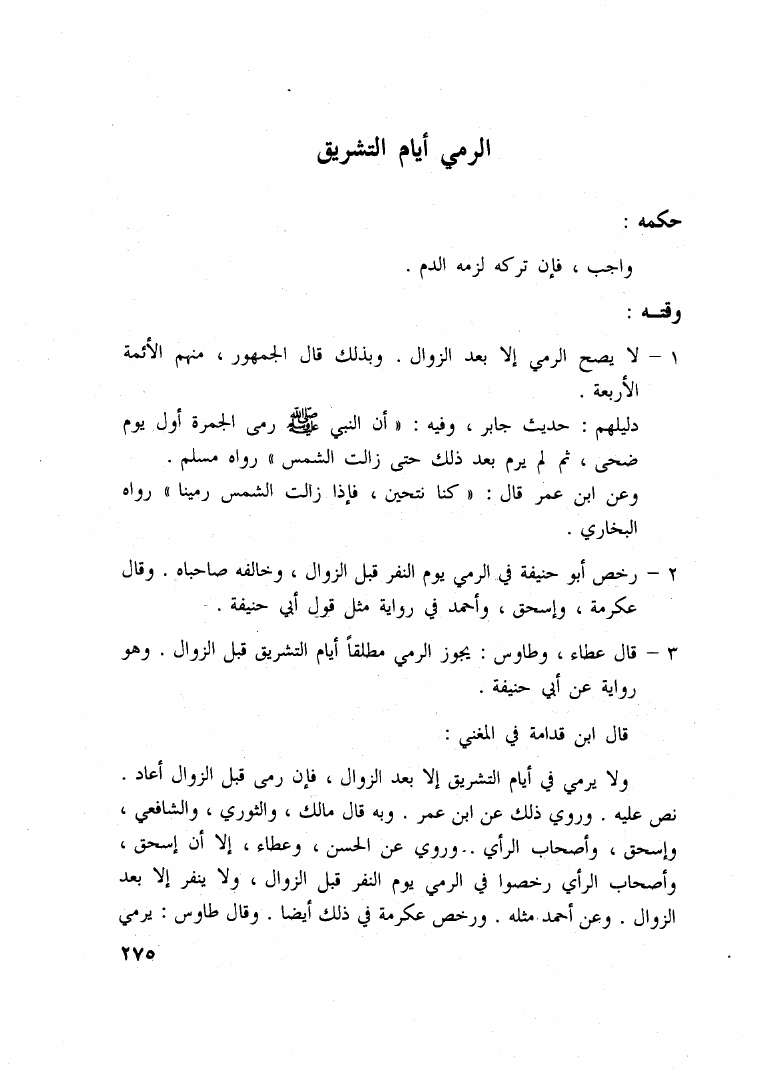 الرمي أيام التشريق
حكمه :
واجب ، فإن تركه لزمه الدم .
وقتـــه :
١ – لا يصح الرمي إلا بعد الزوال . وبذلك قال الجمهور ، منهم الأئمة
الأربعة .
دليلهم : حديث جابر ، وفيه : « أن النبي ﷺ رمى الجمرة أول يوم
ضحى ، ثم لم يرم بعد ذلك حتى زالت الشمس » رواه مسلم .
وعن ابن عمر قال : « كنا نتحين ، فإذا زالت الشمس رمينا » رواه
البخاري .
٢ – رخص أبو حنيفة في الرمي يوم النفر قبل الزوال ، وخالفه صاحباه . وقال
عكرمة ، وإسحق ، وأحمد في رواية مثل قول أبي حنيفة .
٣ – قال عطاء ، وطاوس : يجوز الرمي مطلقاً أيام التشريق قبل الزوال . وهو
رواية عن أبي حنيفة .
قال ابن قدامة في المغني :
ولا يرمي في أيام التشريق إلا بعد الزوال ، فإن رمى قبل الزوال أعاد .
نص عليه . وروي ذلك عن ابن عمر . وبه قال مالك ، والثوري ، والشافعي ،
وإسحق ، وأصحاب الرأي .. وروي عن الحسن ، وعطاء ، إلا أن إسحق ،
وأصحاب الرأي رخصوا في الرمي يوم النفر قبل الزوال ، ولا ينفر إلا بعد
الزوال . وعن أحمد مثله . ورخص عكرمة في ذلك أيضا . وقال طاوس : يرمي
٢٧٥